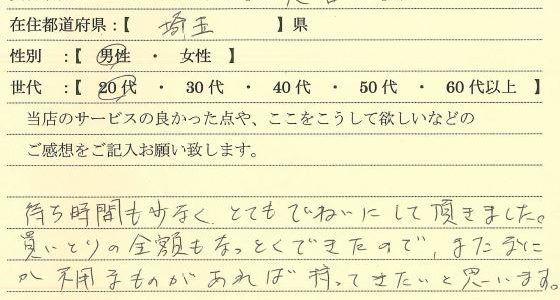 在住都道府県:【 埼玉 】県
性別 :【 男性 ・ 女性 】
世代 :【 20代 ・ 30代 ・ 40代 ・ 50代 ・ 60代以上 】
当店のサービスの良かった点や、ここをこうして欲しいなどの
ご感想をご記入お願い致します。
待ち時間も少なく、とてもていねいにして頂きました。
買いとりの金額もなっとくできたので、またなに
か不用なものがあれば持ってきたいと思います。